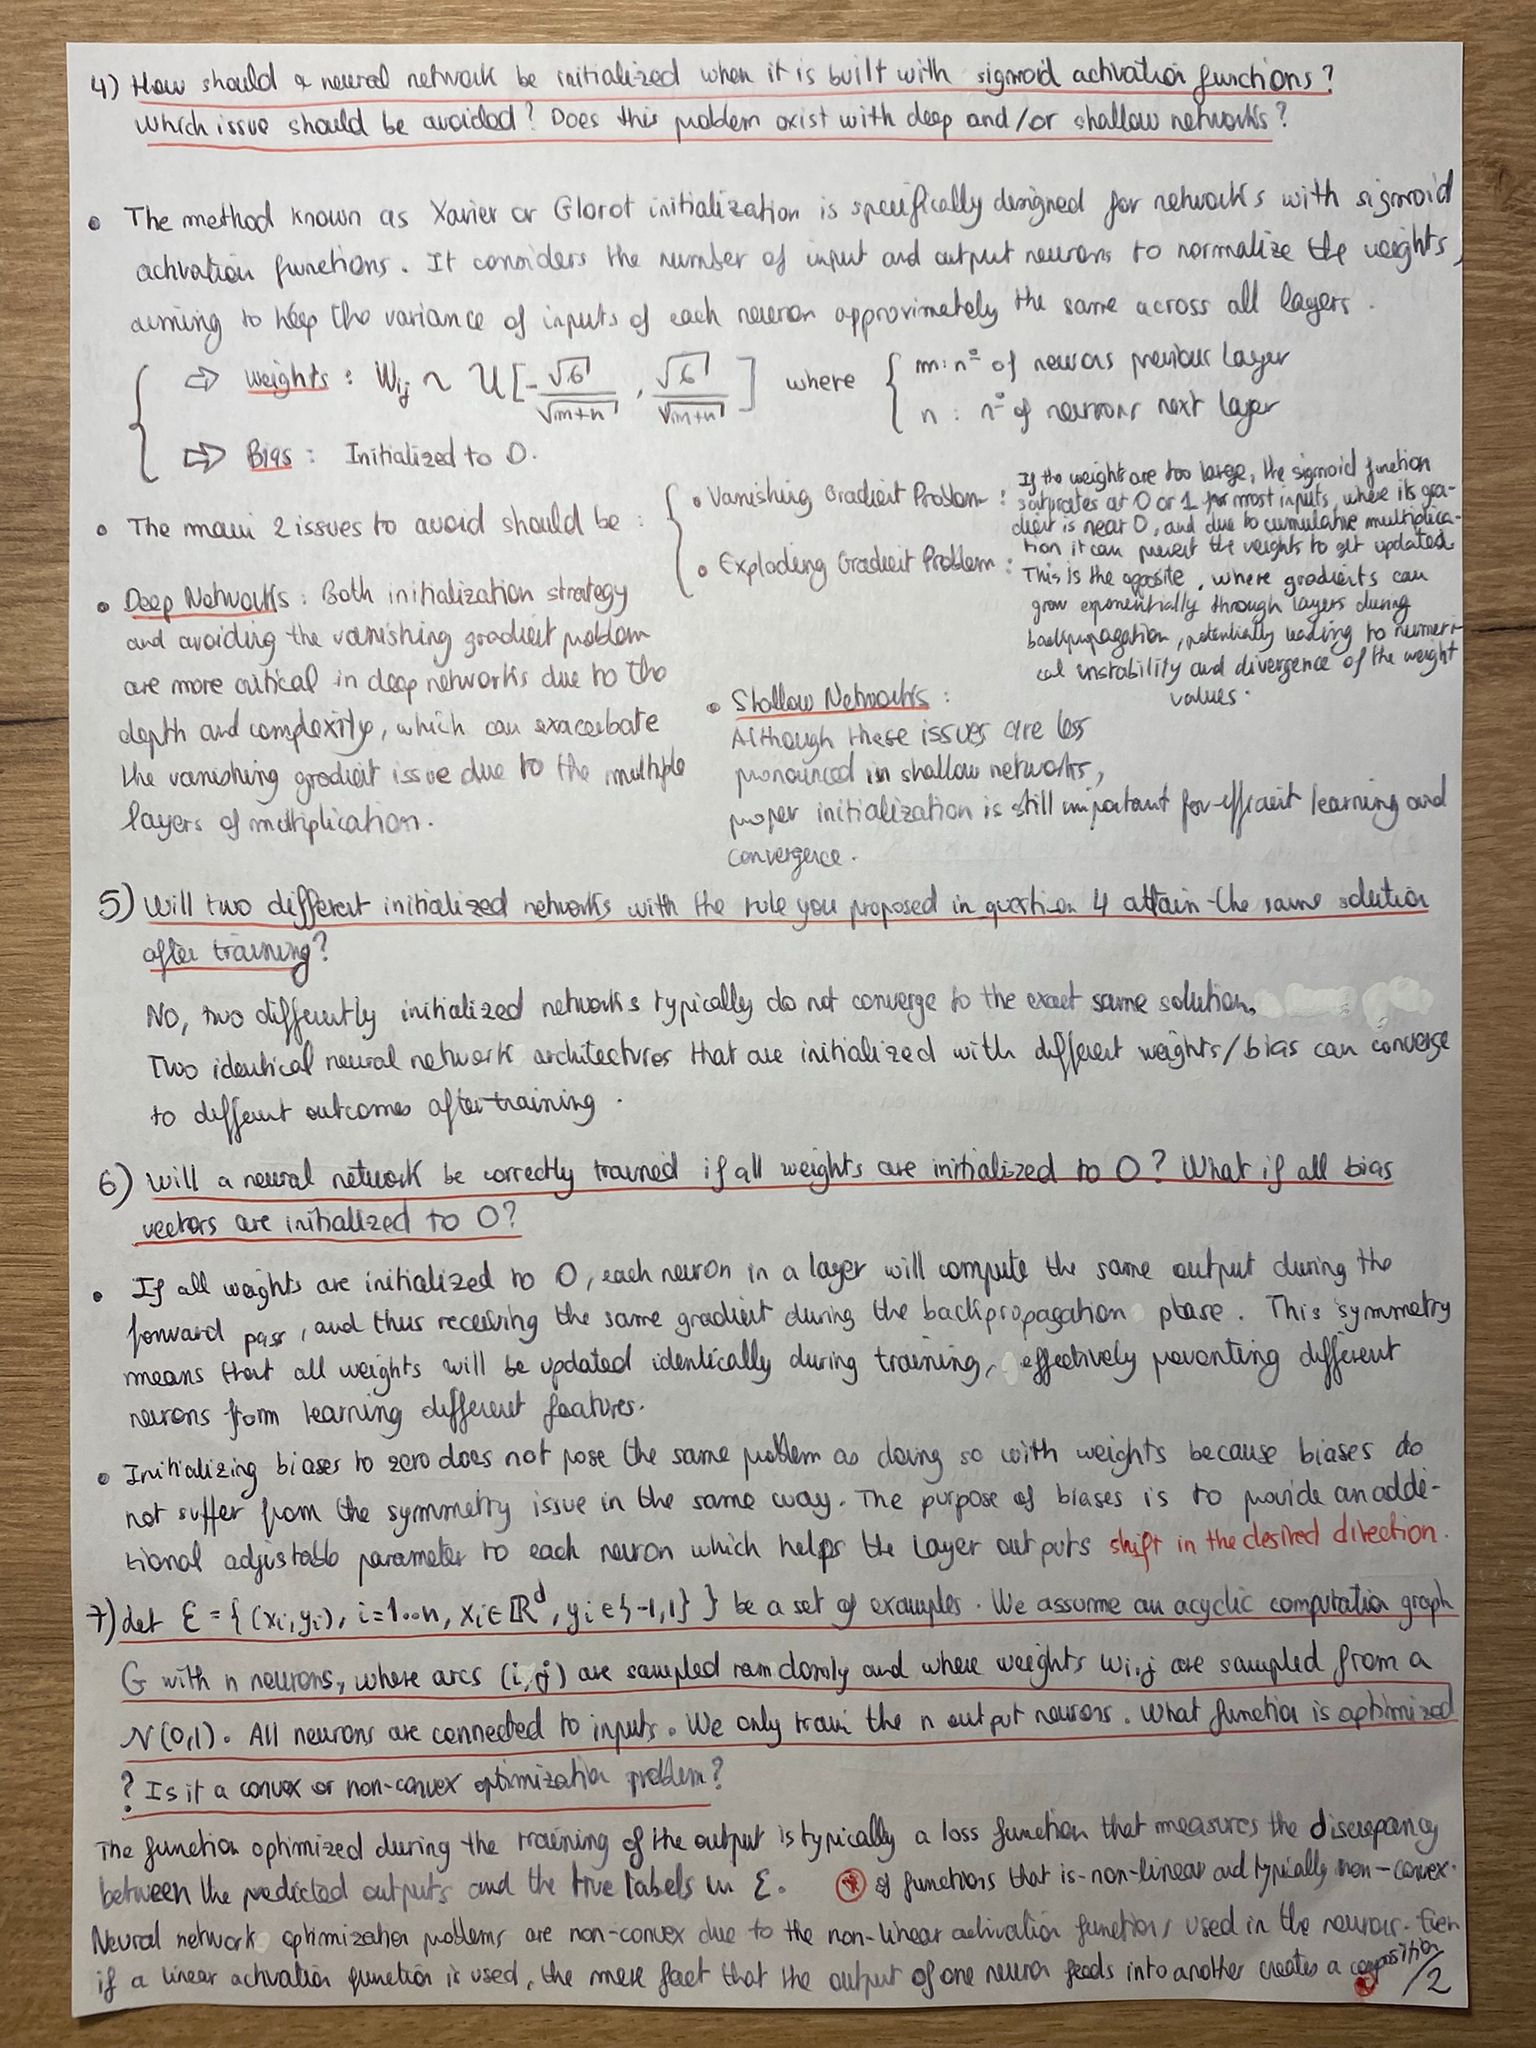 4) How should a neural network be initialized when it is built with sigmoid activation functions?
Which issue should be avoided? Does this problem exist with deep and/or shallow networks?
• The method known as Xavier or Glorot initialization is specifically designed for networks with sigmoid
activation functions. It considers the number of input and output neurons to normalize the weights,
aiming to keep the variance of inputs of each neuron approximately the same across all layers.
⇨ Weights : Wij ~ U[-√6/√m+n , √6/√m+n] where { m: nº of neurons previous layer
n : nº of neurons next layer
⇨ Bias : Initialized to 0.
• The main 2 issues to avoid should be :
• Vanishing Gradient Problem : If the weights are too large, the sigmoid function
saturates at 0 or 1 for most inputs, where its gra-
dient is near 0, and due to cumulative multiplica-
tion it can prevent the weights to get updated.
• Exploding Gradient Problem : This is the opposite, where gradients can
grow exponentially through layers during
backpropagation, potentially leading to numeri-
cal instability and divergence of the weight
values.
• Deep Networks : Both initialization strategy
and avoiding the vanishing gradient problem
are more critical in deep networks due to the
depth and complexity, which can exacerbate
the vanishing gradient issue due to the multiple
layers of multiplication.
• Shallow Networks :
Although these issues are less
pronounced in shallow networks,
proper initialization is still important for efficient learning and
convergence.
5) Will two different initialized networks with the rule you proposed in question 4 attain the same solution
after training?
No, two differently initialized networks typically do not converge to the exact same solution.
Two identical neural network architectures that are initialized with different weights/bias can converge
to different outcomes after training.
6) Will a neural network be correctly trained if all weights are initialized to 0? What if all bias
vectors are initialized to 0?
• If all weights are initialized to 0, each neuron in a layer will compute the same output during the
forward pass, and thus receiving the same gradient during the backpropagation phase. This symmetry
means that all weights will be updated identically during training, effectively preventing different
neurons from learning different features.
• Initializing biases to zero does not pose the same problem as doing so with weights because biases do
not suffer from the symmetry issue in the same way. The purpose of biases is to provide an addi-
tional adjustable parameter to each neuron which helps the layer outputs shift in the desired direction.
7) Let Ɛ = {(xi, yi), i=1...n, xi∈ℝᵈ, yi∈{-1,1}} be a set of examples. We assume an acyclic computation graph
G with n neurons, where arcs (i, j) are sampled randomly and where weights wi,j are sampled from a
N(0,1). All neurons are connected to inputs. We only train the n output neurons. What function is optimized
? Is it a convex or non-convex optimization problem?
The function optimized during the training of the output is typically a loss function that measures the discrepancy
between the predicted outputs and the true labels in Ɛ. (*) of functions that is non-linear and typically non-convex.
Neural network optimization problems are non-convex due to the non-linear activation functions used in the neurons. Even
if a linear activation function is used, the mere fact that the output of one neuron feeds into another creates a composition (*)
/2